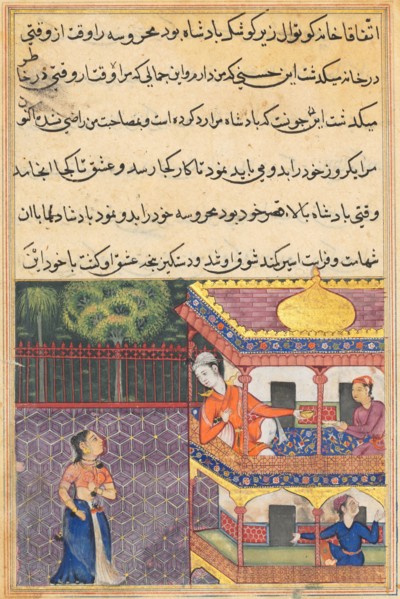 اتفاقا خانه کوتوال زیر کوشک بادشاه بود محروسه را وقت از وقتی
در خانه میکذشت این حسنی که من دارم و این جمالی که مرا وقتی در خاطر
میکذشت این چونست که بادشاه مرا رد کرده است و بمصاحبت من راضی نشده اکنون
مرا یکروز خود را بدو می باید نمود تا کار کجا رسد و عشق تا کجا انجامد
وقتی بادشاه بالاء قصر خود بود محروسه خود را بدو نمود بادشاه باان
شهامت و فراست اسیر کمند شوق او شد و دستکیر پنجه عشق او کشت با خود این